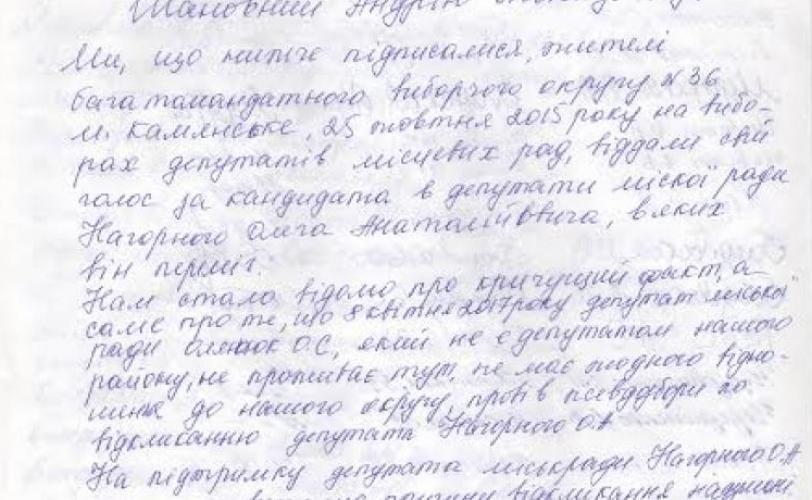 Шановний Андрій
Ми, що нижче підписалися, жителі
багатомандатного виборчого округу №36
м. Камянське, 25 жовтня 2015 року на вибо-
рах депутатів місцевих рад, віддали свій
голос за кандидата в депутати міскої ради
Нагорного Олега Анатолійвича, в яких
він переміг.
Нам стало відомо про кричущий факт, а
саме про те, що 8 квітня 2017 року депутат міської
ради О.С, який не є депутатом нашого
району, не проживає тут, не має жодного відно-
шиня до нашого округу, провів псевдозбори по
відкликанню депутата Нагорного О.А
На підтримку депутата міськради Нагорного О.А
відкликання